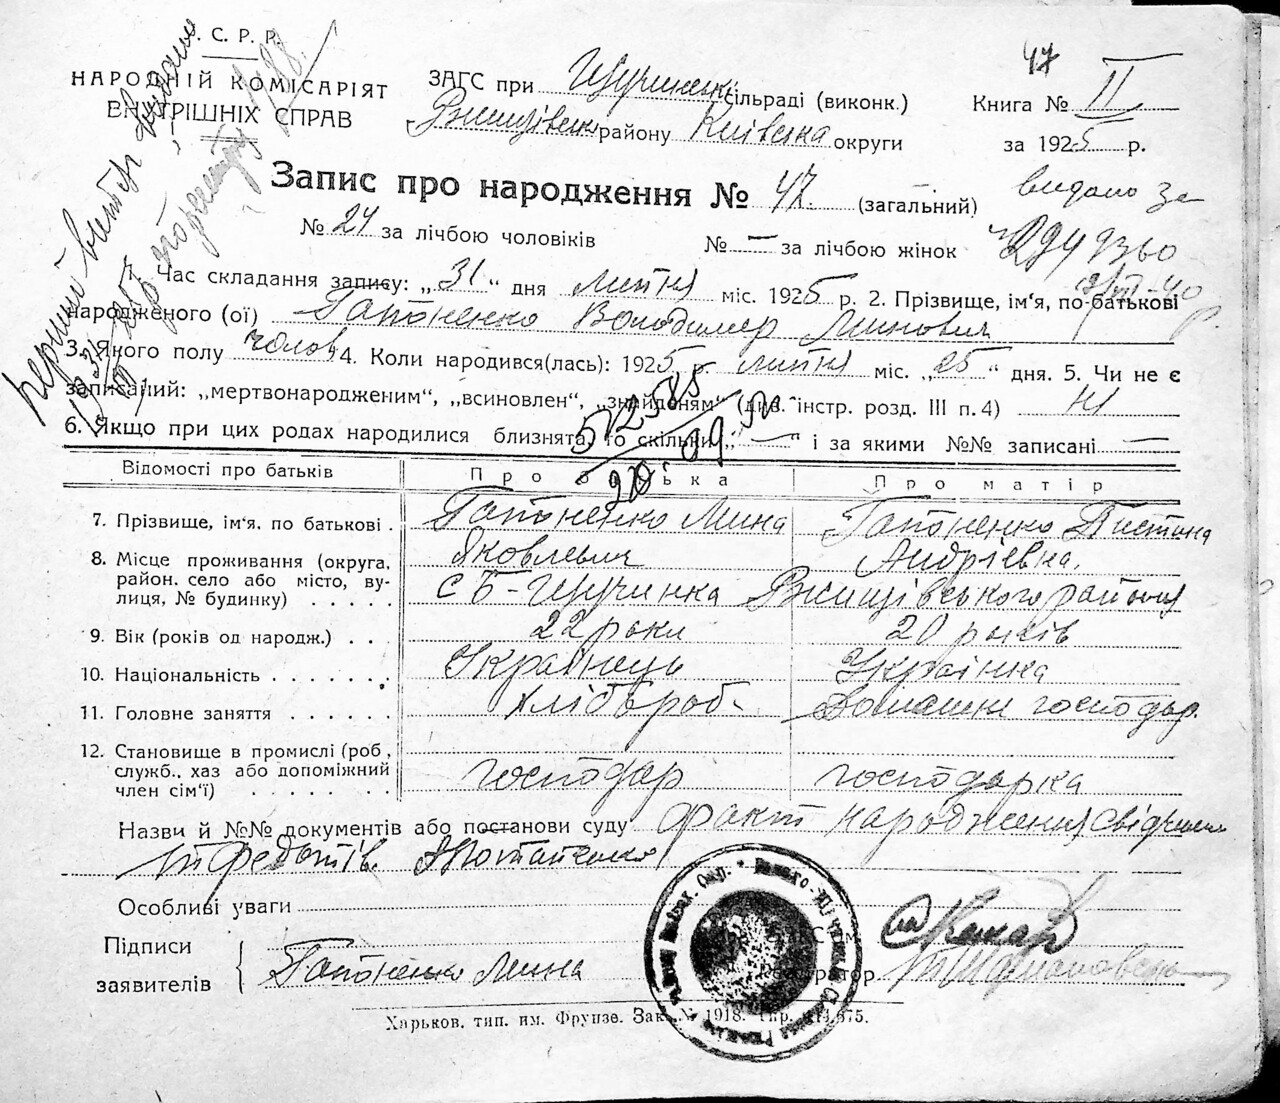 С. Р. Р.
НАРОДНІЙ КОМІСАРІЯТ
ВНУТРІШНІХ СПРАВ
ЗАГС при Щучинськ сільраді (виконк.)
Ржищівськ району Київська округи
47
Книга № II
за 1925 р.
Запис про народження № 47. (загальний)
видано
№ 24 за лічбою чоловіків № — за лічбою жінок
Перший витяг видано
1. Час складання запису: „31“ дня липня міс. 1925 р. 2. Прізвище, ім'я, по-батькові
народженого (ої) Гапоненко Володимер Минович
3. Якого полу чолов 4. Коли народився(лась): 1925 р. липня міс. „25“ дня. 5. Чи не є
записаний: „мертвонародженим“, „всиновлен“, „знайдоням“ (див. інстр. розд. III п. 4) Ні
6. Якщо при цих родах народилися близнята, то скільки „—“ і за якими №№ записані —
Відомості про батьків Про батька Про матір
7. Прізвище, ім'я, по батькові . Гапоненко Мина Гапоненко Пистина
Яковлевич Андріевна.
8. Місце проживання (округа,
район, село або місто, ву-
лиця, № будинку) . . . . . с Б-Щучинка Ржищівського району
9. Вік (років од народж.) . . 22 роки 20 років
10. Національність . . . . . . . Українець Українка
11. Головне заняття . . . . . . Хлібороб- Домашнє господар.
12. Становище в промислі (роб.,
служб., хаз або допоміжний
член сім'ї) . . . . . . . . господар господарка
Назви й №№ документів або постанови суду факт народження свідчили
Федотів. Потапенко
Особливі уваги
Підписи
заявителів
Гапоненко Мина
Реєстратор
Харьков, тип. им. Фрунзе. Зак. № 1918.